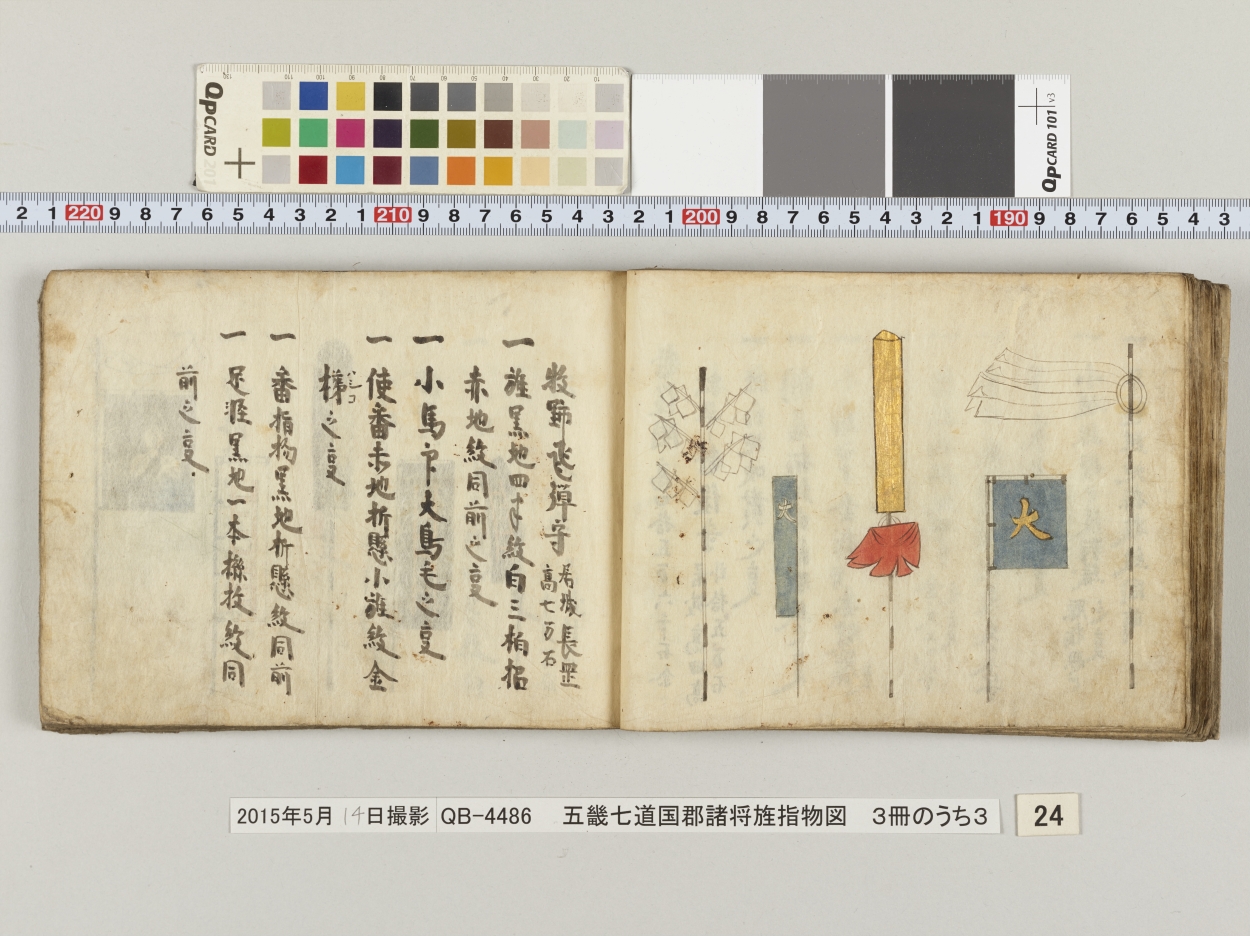 QPCARD 201
QPCARD 101 v3
2 1 220 9 8 7 6 5 4 3 2 1 210 9 8 7 6 5 4 3 2 1 200 9 8 7 6 5 4 3 2 1 190 9 8 7 6 5 4 3
大
大
牧野飛弾守
居城長罡
高七万石
一 旌黒地四半紋白三柏招
赤地紋同前之変
一 小馬印大鳥毛之変
一 使番赤地折懸小旌紋金
梯之変
ハシコ
一 番指物黒地折懸紋同前
一 足涯黒地一本撫技紋同
前之変
2015年5月14日撮影 QB-4486 五畿七道国郡諸将旌指物図 3冊のうち3
24